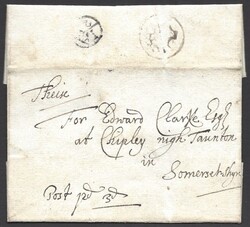 These
For Edward Clarke Esqr
at Chipley nigh Taunton
in
Somersetshyre
Post pd 3d